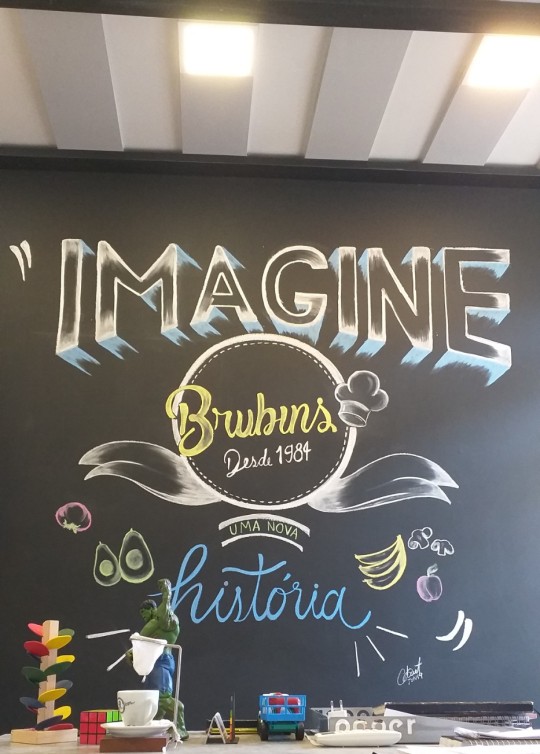 "IMAGINE
Brubins
Desde 1984
UMA NOVA
história
paper